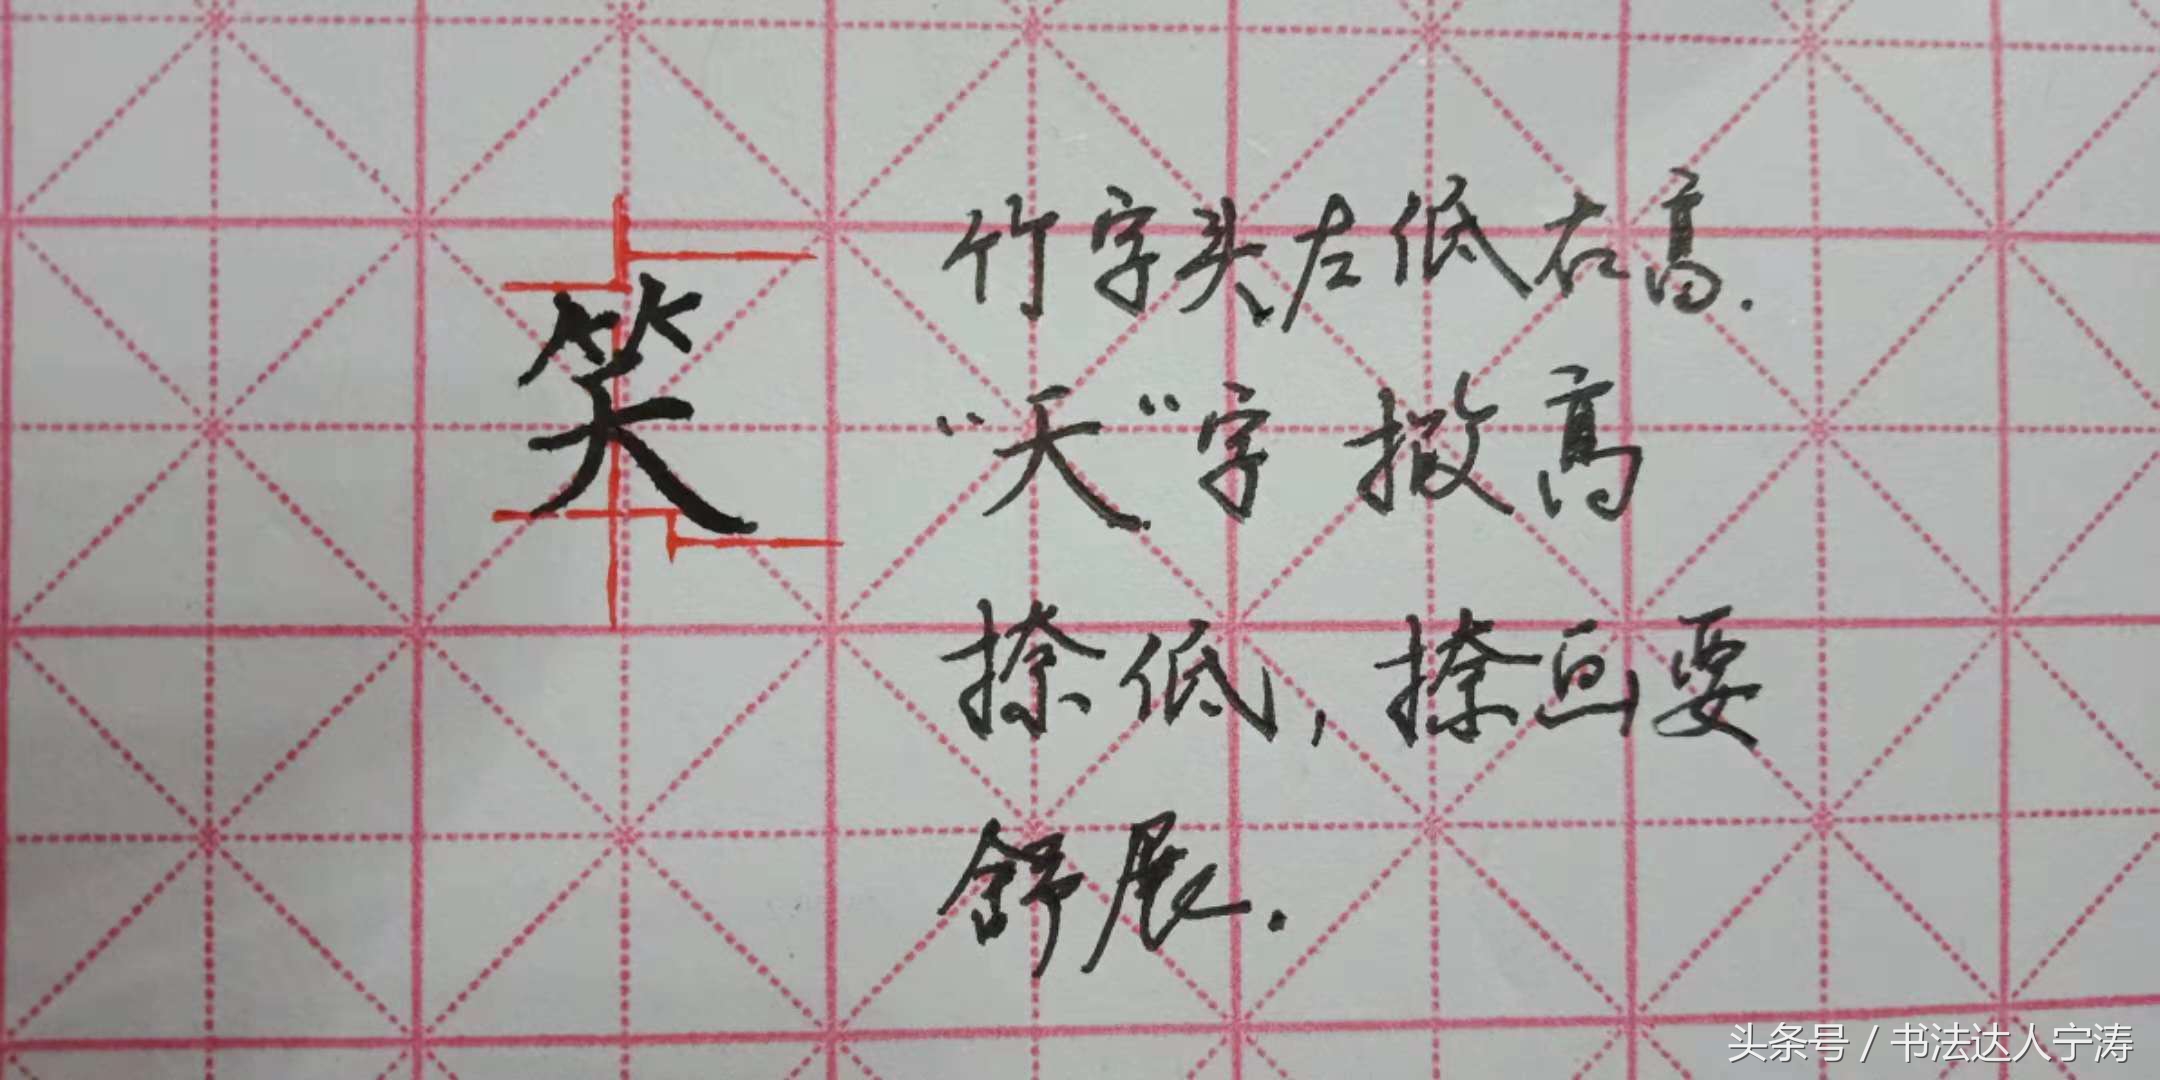 笑
竹字头左低右高.
“天”字撇高
捺低,捺画要
舒展.
头条号 / 书法达人宁涛